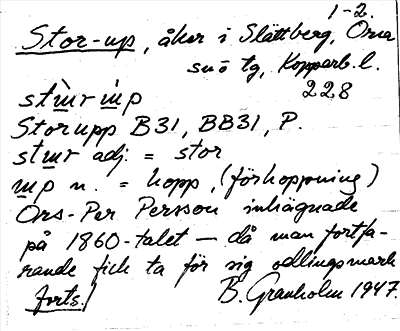 1-2.
Stor-up, åker i Slättberg, Orsa
snö tg, Kopparb. l.
228
stɯ̀r ɯ́p
Storupp B31, BB31, P.
stɯr adj. = stor
ɯp n. = hopp, (förhoppning)
Ons-Per Persson inhägnade
på 1860-talet — då man fortfa-
rande fick ta för sig odlingsmark
forts./ B. Granholm 1947.